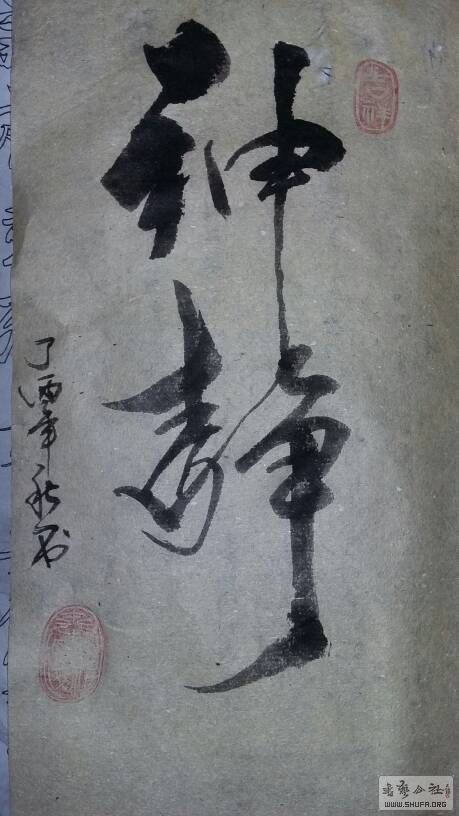 神静
丁酉年秋写
吉祥
书艺公社
WWW.SHUFA.ORG